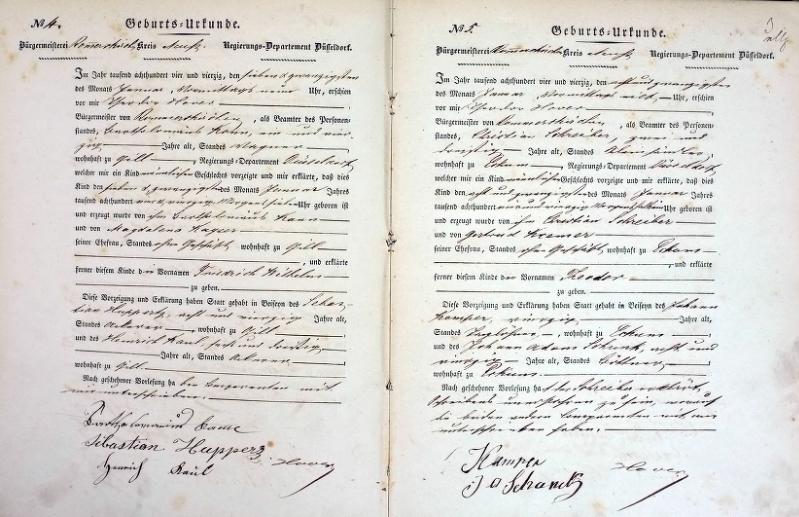 No 4. Geburts-Urkunde.
Bürgermeisterei Kreis Neuß Regierungs-Departement Düsseldorf.
Im Jahr tausend achthundert vier und vierzig, den sieben & zwanzigsten
des Monats Januar, Vormittags neun Uhr, erschien
vor mir Theodor Hover
Bürgermeister von Rommerskirchen, als Beamter des Personen-
standes, Bartholomäus ein und vier-
zig Jahre alt, Standes
wohnhaft zu Gill, Regierungs-Departement Düsseldorf
welcher mir ein Kind männlichen Geschlechts vorzeigte und mir erklärte, daß dies
Kind den sieben & zwanzigsten des Monats Januar Jahrs
tausend achthundert vier & vierzig Morgens Uhr geboren ist
und erzeugt wurde von ihm Bartholomäus
und von Magdalena
seiner Ehefrau, Standes ohne Geschäft, wohnhaft zu Gill
, und erklärte
ferner diesem Kinde die Vornamen Friedrich Wilhelm
zu geben.
Diese Vorzeigung und Erklärung haben Statt gehabt in Beiseyn des Sebas-
tian Huppertz, acht und vierzig Jahre alt,
Standes Ackerer, wohnhaft zu Gill
und des Heinrich Kaul, sechs und
Jahre alt, Standes Ackerer
wohnhaft zu Gill
Nach geschehener Vorlesung haben Comparenten mit
mir unterschrieben.
Bartholomäus
Sibastian Hupperz
Henrich Kaul Hover
No 5. Geburts-Urkunde.
Bürgermeisterei Rommerskirchen Kreis Neuß Regierungs-Departement Düsseldorf.
Im Jahr tausend achthundert vier und vierzig, den acht und zwanzigsten
des Monats Januar, Vormittags elf Uhr, erschien
vor mir Theodor Hover
Bürgermeister von Rommerskirchen, als Beamter des Personen-
standes, Christian Schreiber, zwei und
dreißig Jahre alt, Standes
wohnhaft zu Eckum, Regierungs-Departement Düsseldorf
welcher mir ein Kind männlichen Geschlechts vorzeigte und mir erklärte, daß dies
Kind den acht und zwanzigsten des Monats Januar Jahrs
tausend achthundert vier und vierzig Morgens Uhr geboren ist
und erzeugt wurde von ihm Christian Schreiber
und von Gertrud Kremer
seiner Ehefrau, Standes ohne Geschäft, wohnhaft zu Eckum
, und erklärte
ferner diesem Kinde den Vornamen Theodor
zu geben.
Diese Vorzeigung und Erklärung haben Statt gehabt in Beiseyn des Johann
Kamper, vierzig Jahre alt,
Standes Taglöhner, wohnhaft zu Eckum
und des Johann Adam Schunk, acht und
vierzig Jahre alt, Standes
wohnhaft zu Eckum
Nach geschehener Vorlesung hat der Schreiber erklärt,
Schreibens unerfahren zu sein, worauf
die beiden andern Comparenten mit mir
unterschrieben haben.
Kamper Hover
J A Schanck